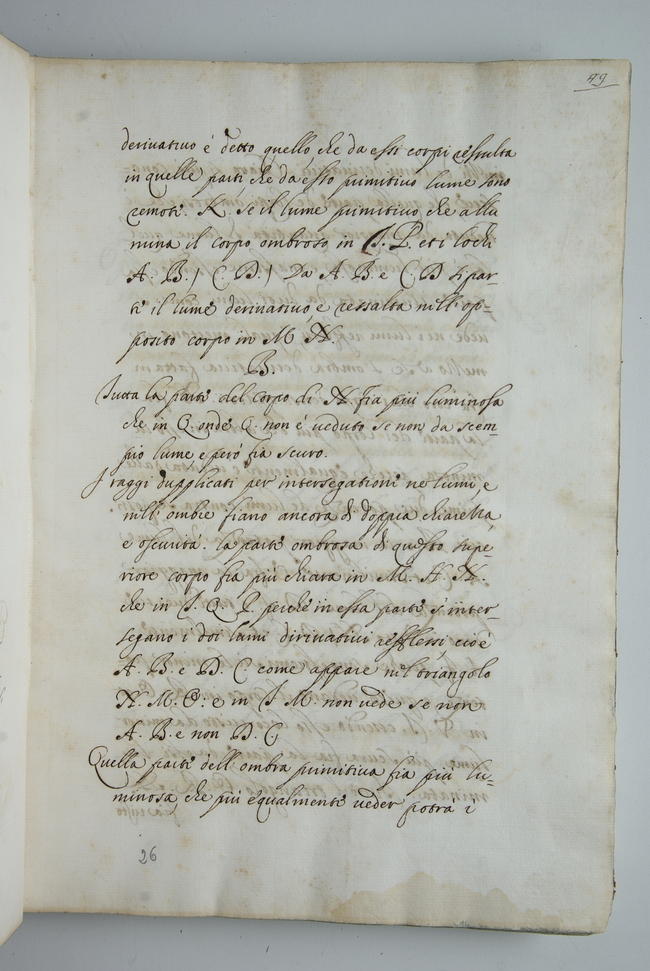 49
derivativo è detto quello, che da essi corpi ressulta
in quelle parti che da esso primitivo lume sono
remoti. K. se il lume primitivo che allu
mina il corpo ombroso in S. P. et i lochi
A. B.) C. D.) Da A. B. e C. D si par-
te il lume derivativo, e ressalta nell'op=
posito corpo in M N.
B
Tutta la parte del corpo di N. fia più luminosa
che in Q. onde Q. non è veduto se non da scem-
pio lume e però fia scuro.
I raggi dupplicati per intersegationi ne lumi, e
nell'ombre fiano ancora di doppia chiarezza,
e oscurità. la parte ombrosa di questo supe-
riore corpo fia più chiara in M. H. N.
che in S. Q. P. perche in essa parte s'inter-
segano i doi lumi dirivativi refflessi cioè
A. B. e D. C. come appare nel triangolo
N. M. O: e in S M. non vede se non
A. B. e non D. C.
Quella parte dell'ombra primitiva fia più lu=
minosa, che più equalmente veder potrà i
26